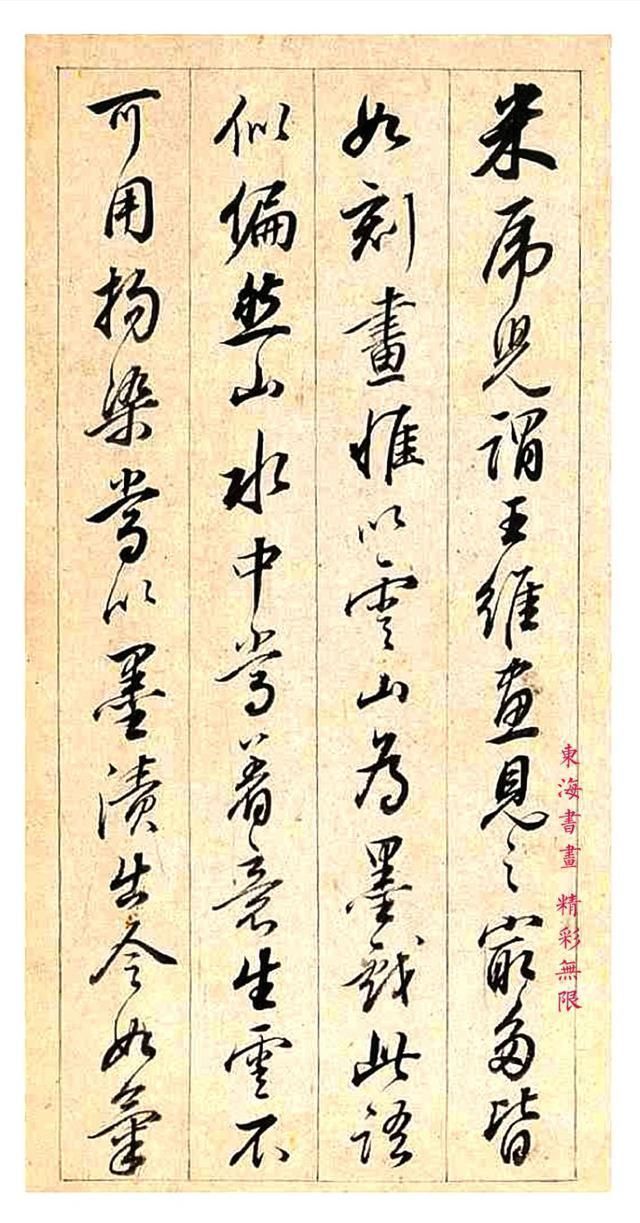 米虎児謂王維畫見之最多皆
如刻畫惟以雲山為墨戲此語
似偏然山水中當著意生雲不
可用拘染當以墨漬出令如氣
東海書畫 精彩無限